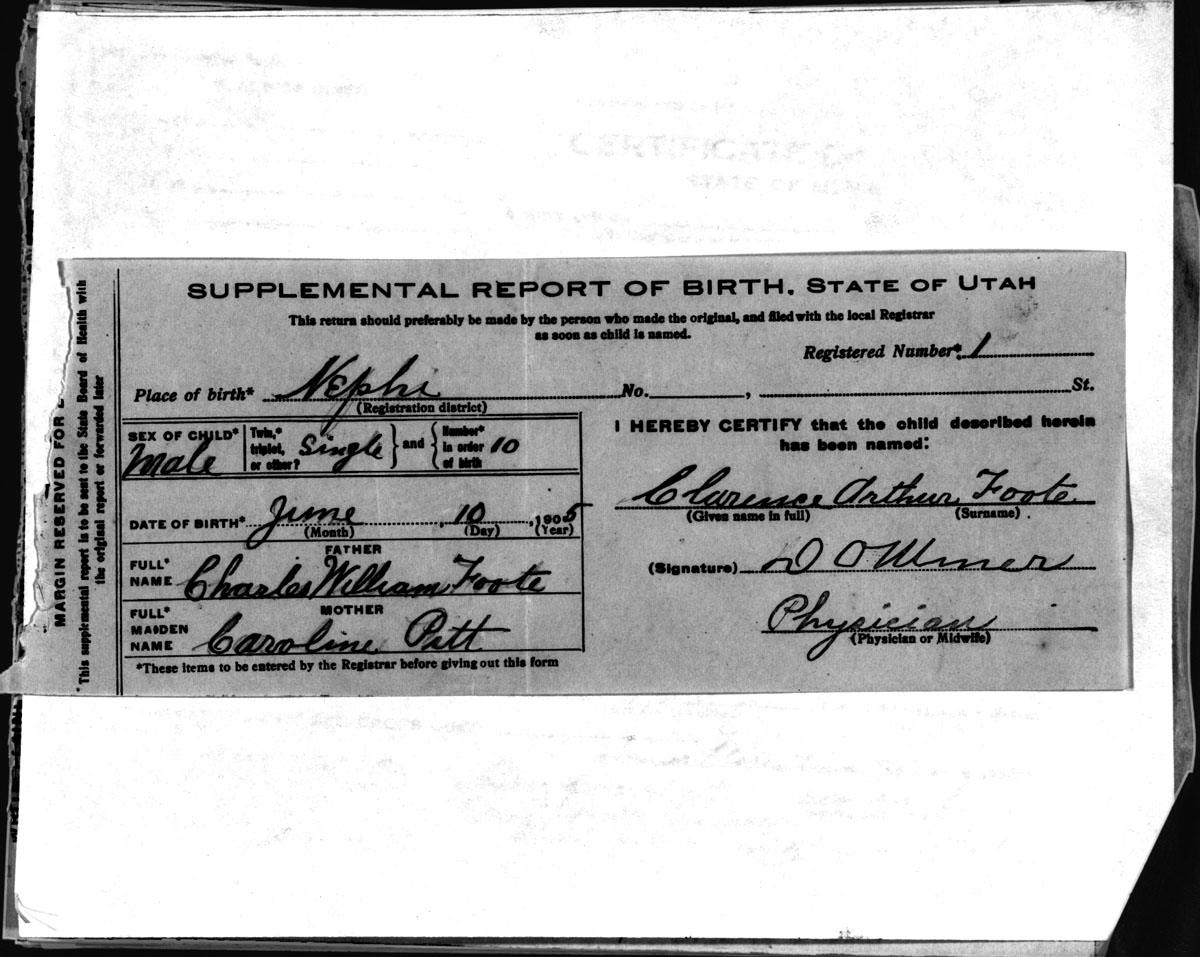 SUPPLEMENTAL REPORT OF BIRTH. STATE OF UTAH
This return should preferably be made by the person who made the original, and filed with the local Registrar
as soon as child is named.
Registered Number* 1
Place of birth* Nephi No. , St.
(Registration district)
SEX OF CHILD*
Male
Twin,*
triplet,
or other?
Single
and
Number*
in order
of birth
10
DATE OF BIRTH* June , 10 , 1905
(Month) (Day) (Year)
FATHER
FULL*
NAME
Charles William Foote
MOTHER
FULL*
MAIDEN
NAME
Caroline Pitt
*These items to be entered by the Registrar before giving out this form
I HEREBY CERTIFY that the child described herein
has been named:
Clarence Arthur Foote
(Given name in full) (Surname)
(Signature)
Physician
(Physician or Midwife)
MARGIN RESERVED FOR
*This supplemental report is to be sent to the State Board of Health with
the original report or forwarded later